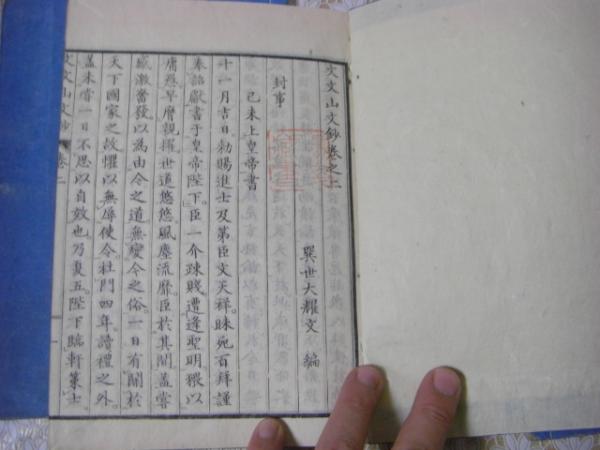 文文山文鈔卷之二
巽世大耀文 編
封事
己未上皇帝書
十一月吉日勅賜進士及第臣文天祥昧死百拜謹
奉詔獻書于皇帝陛下臣一介疎賤遭逢聖明猥以
庸愚早膺親擢世道悠悠風塵流靡臣於其間蓋嘗
感激奮發以為由今之道無變今之俗一日有關於
天下國家之故懼以無辱使令杜門四年讀禮之外
蓋未嘗一日不思以自效也乃夏五陛下臨軒策士
文文山文鈔 卷二